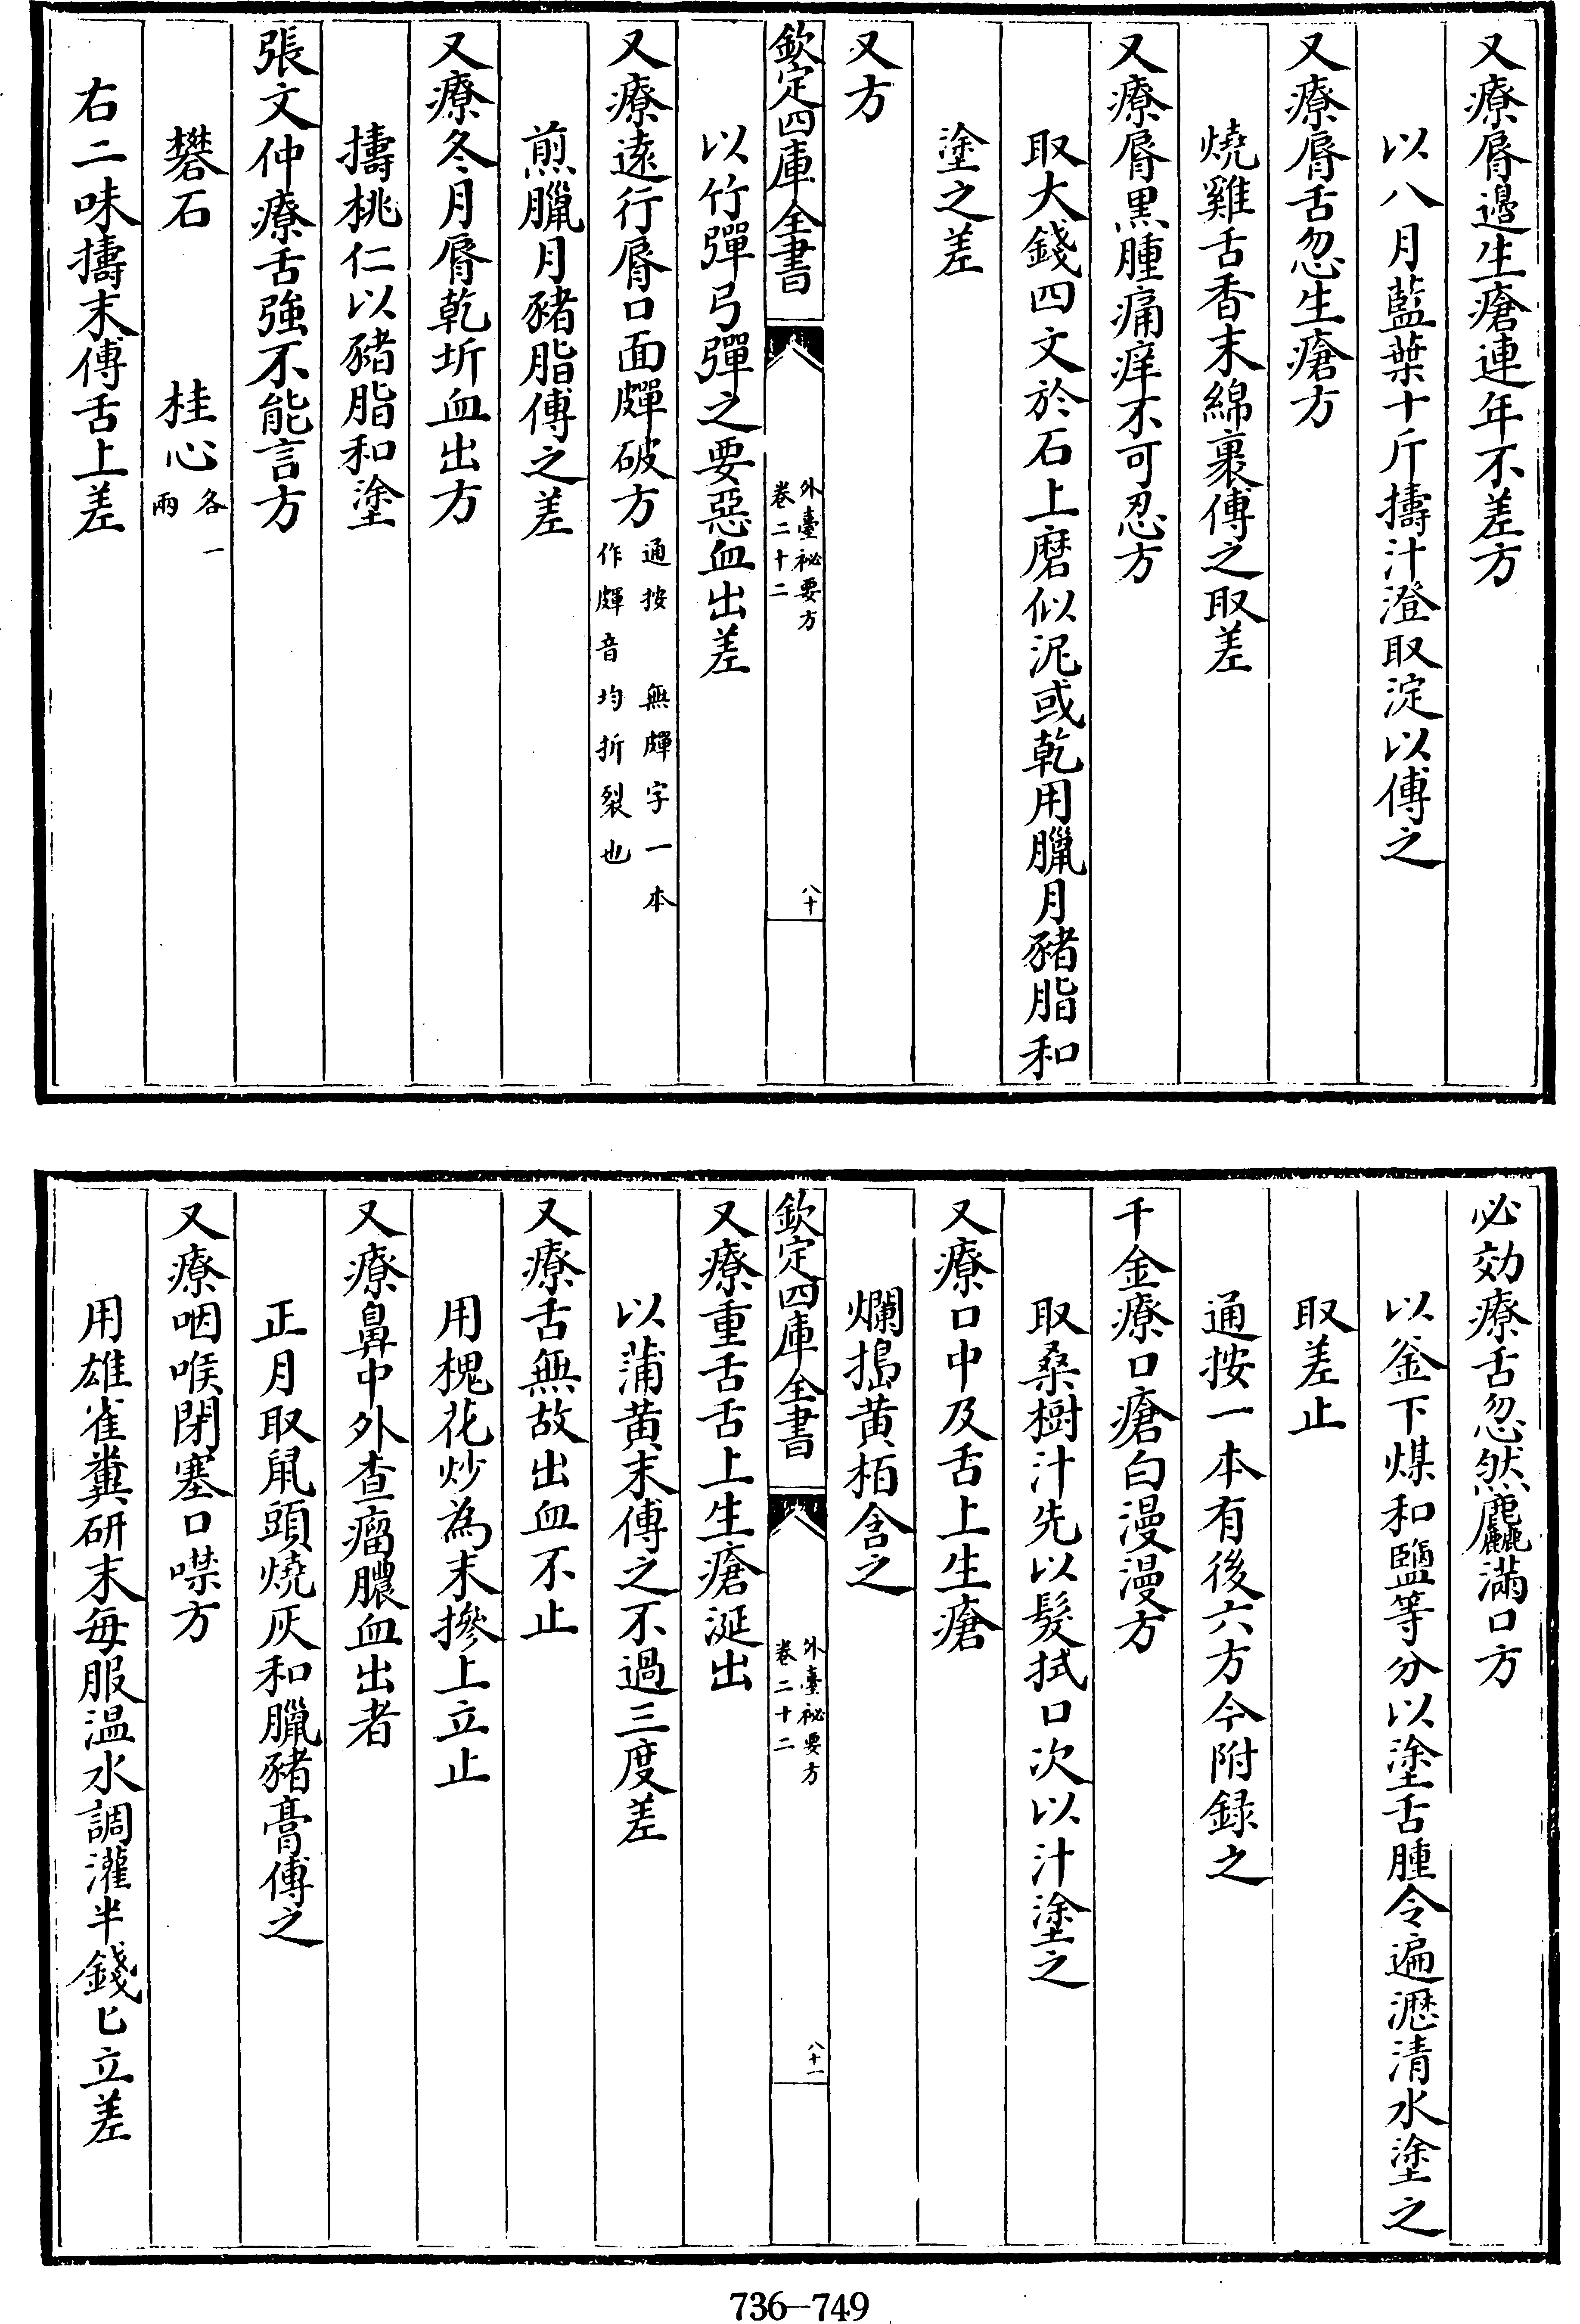 又療脣邊生瘡連年不差方
以八月藍葉十斤擣汁澄取淀以傅之
又療脣舌忽生瘡方
燒雞舌香末綿裹傅之取差
又療脣黑腫痛痒不可忍方
取大錢四文於石上磨似泥或乾用臘月豬脂和
塗之差
又方
欽定四庫全書
外臺祕要方
卷二十二
八十
以竹彈弓彈之要惡血出差
又療遠行脣口面皹破方
通按 無皹字一本
作皹音均折裂也
煎臘月豬脂傅之差
又療冬月脣乾坼血出方
擣桃仁以豬脂和塗
張文仲療舌強不能言方
礬石 桂心各一兩
右二味擣末傅舌上差
必効療舌忽然麤滿口方
以釜下煤和鹽等分以塗舌腫令遍瀝清水塗之
取差止
通按一本有後六方今附録之
千金療口瘡白漫漫方
取桑樹汁先以髮拭口次以汁塗之
又療口中及舌上生瘡
爛搗黄栢含之
欽定四庫全書
外臺祕要方
卷二十二
八十一
又療重舌舌上生瘡涎出
以蒲黄末傅之不過三度差
又療舌無故出血不止
用槐花炒為末摻上立止
又療鼻中外查瘤膿血出者
正月取鼠頭燒灰和臘豬膏傅之
又療咽喉閉塞口噤方
用雄雀糞研末每服温水調灌半錢匕立差
736—749